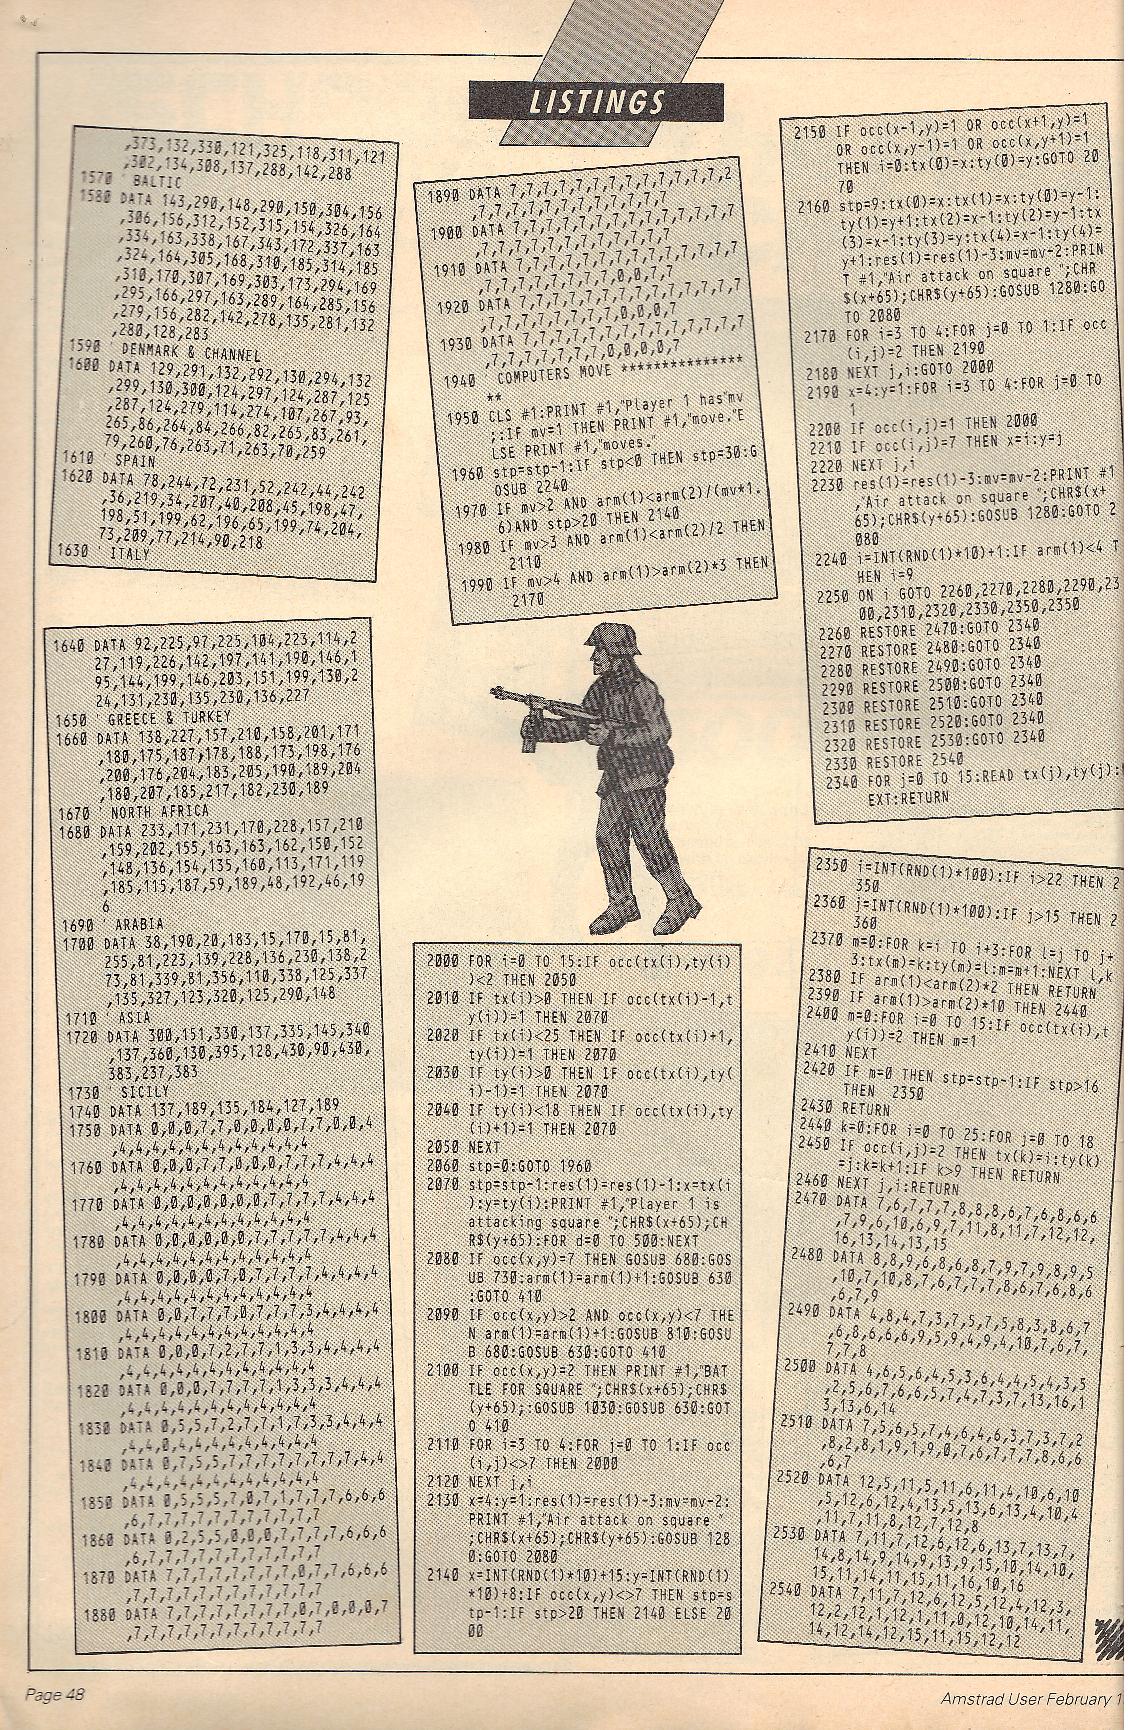 LISTINGS
,373,132,330,121,325,118,311,121
,302,134,308,137,288,142,288
1570 ' BALTIC
1580 DATA 143,290,148,290,150,304,156
,306,156,312,152,315,154,326,164
,334,163,338,167,343,172,337,163
,324,164,305,168,310,185,314,185
,310,170,307,169,303,173,294,169
,295,166,297,163,289,164,285,156
,279,156,282,142,278,135,281,132
,280,128,283
1590 ' DENMARK & CHANNEL
1600 DATA 129,291,132,292,130,294,132
,299,130,300,124,297,124,287,125
,287,124,279,114,274,107,267,93,
265,86,264,84,266,82,265,83,261,
79,260,76,263,71,263,70,259
1610 ' SPAIN
1620 DATA 78,244,72,231,52,242,44,242
,36,219,34,207,40,208,45,198,47,
198,51,199,62,196,65,199,74,204,
73,209,77,214,90,218
1630 ' ITALY
1640 DATA 92,225,97,225,104,223,114,2
27,119,226,142,197,141,190,146,1
95,144,199,146,203,151,199,130,2
24,131,230,135,230,136,227
1650 ' GREECE & TURKEY
1660 DATA 138,227,157,210,158,201,171
,180,175,187,178,188,173,198,176
,200,176,204,183,205,190,189,204
,180,207,185,217,182,230,189
1670 ' NORTH AFRICA
1680 DATA 233,171,231,170,228,157,210
,159,202,155,163,163,162,150,152
,148,136,154,135,160,113,171,119
,185,115,187,59,189,48,192,46,19
6
1690 ' ARABIA
1700 DATA 38,190,20,183,15,170,15,81,
255,81,223,139,228,136,230,138,2
73,81,339,81,356,110,338,125,337
,135,327,123,320,125,290,148
1710 ' ASIA
1720 DATA 300,151,330,137,335,145,340
,137,360,130,395,128,430,90,430,
383,237,383
1730 ' SICILY
1740 DATA 137,189,135,184,127,189
1750 DATA 0,0,0,7,7,0,0,0,0,7,7,0,0,4
,4,4,4,4,4,4,4,4,4,4,4
1760 DATA 0,0,0,7,7,0,0,0,7,7,7,4,4,4
,4,4,4,4,4,4,4,4,4,4,4
1770 DATA 0,0,0,0,0,0,0,7,7,7,7,4,4,4
,4,4,4,4,4,4,4,4,4,4,4
1780 DATA 0,0,0,0,0,0,7,7,7,7,7,4,4,4
,4,4,4,4,4,4,4,4,4,4,4
1790 DATA 0,0,0,0,7,0,7,7,7,7,4,4,4,4
,4,4,4,4,4,4,4,4,4,4,4
1800 DATA 0,0,7,7,7,0,7,7,7,3,4,4,4,4
,4,4,4,4,4,4,4,4,4,4,4
1810 DATA 0,0,0,7,2,7,7,1,3,3,4,4,4,4
,4,4,4,4,4,4,4,4,4,4,4
1820 DATA 0,0,0,7,7,7,7,1,3,3,3,4,4,4
,4,4,4,4,4,4,4,4,4,4,4
1830 DATA 0,5,5,7,2,7,7,1,7,3,3,4,4,4
,4,4,0,4,4,4,4,4,4,4,4
1840 DATA 0,7,5,5,7,7,7,7,7,7,7,7,4,4
,4,4,4,4,4,4,4,4,4,4,4
1850 DATA 0,5,5,5,7,0,7,1,7,7,7,6,6,6
,6,7,7,7,7,7,7,7,7,7,7
1860 DATA 0,2,5,5,0,0,0,7,7,7,7,6,6,6
,6,7,7,7,7,7,7,7,7,7,7
1870 DATA 7,7,7,7,7,7,7,7,0,7,7,6,6,6
,7,7,7,7,7,7,7,7,7,7,7
1880 DATA 7,7,7,7,7,7,7,7,0,7,0,0,0,7
,7,7,7,7,7,7,7,7,7,7,7
1890 DATA 7,7,7,7,7,7,7,7,7,7,7,7,7,2
,7,7,7,7,7,7,7,7,7,7,7
1900 DATA 7,7,7,7,7,7,7,7,7,7,7,7,7,7
,7,7,7,7,7,7,7,7,7,7,7
1910 DATA 7,7,7,7,7,7,7,7,7,7,7,7,7,7
,7,7,7,7,7,7,7,0,0,7,7
1920 DATA 7,7,7,7,7,7,7,7,7,7,7,7,7,7
,7,7,7,7,7,7,7,0,0,0,7
1930 DATA 7,7,7,7,7,7,7,7,7,7,7,7,7,7
,7,7,7,7,7,7,0,0,0,0,7
1940 ' COMPUTERS MOVE ***************
**
1950 CLS #1:PRINT #1,"Player 1 has"mv
;:IF mv=1 THEN PRINT #1,"move."E
LSE PRINT #1,"moves."
1960 stp=stp-1:if stp<0 THEN stp=30:G
OSUB 2240
1970 IF mv>2 AND arm(1)<arm(2)/(mv*1.
6)AND stp>20 THEN 2140
1980 IF mv>3 AND arm(1)<arm(2)/2 THEN
2110
1990 IF mv>4 AND arm(1)>arm(2)*3 THEN
2170
2000 FOR i=0 TO 15:IF occ(tx(i),ty(i)
)<2 THEN 2050
2010 IF tx(i)>0 THEN IF occ(tx(i)-1,t
y(i))=1 THEN 2070
2020 IF tx(i)<25 THEN IF occ(tx(i)+1,
ty(i))=1 THEN 2070
2030 IF ty(i)>0 THEN IF occ(tx(i),ty(
i)-1)=1 THEN 2070
2040 IF ty(i)<18 THEN IF occ(tx(i),ty
(i)+1)=1 THEN 2070
2050 NEXT
2060 stp=0:GOTO 1960
2070 stp=stp-1:res(1)=res(1)-1:x=tx(i
):y=ty(i):PRINT #1,"Player 1 is
attacking square ";CHR$(x+65);CH
R$(y+65):FOR d=0 TO 500:NEXT
2080 IF occ(x,y)=7 THEN GOSUB 680:GOS
UB 730:arm(1)=arm(1)+1:GOSUB 630
:GOTO 410
2090 IF occ(x,y)>2 AND occ(x,y)<7 THE
N arm(1)=arm(1)+1:GOSUB 810:GOSU
B 680:GOSUB 630:GOTO 410
2100 IF occ(x,y)=2 THEN PRINT #1,"BAT
TLE FOR SQUARE ";CHR$(x+65);CHR$
(y+65);:GOSUB 1030:GOSUB 630:GOT
O 410
2110 FOR i=3 TO 4:FOR j=0 TO 1:IF occ
(i,j)<>7 THEN 2000
2120 NEXT j,i
2130 x=4:y=1:res(1)=res(1)-3:mv=mv-2:
PRINT #1,"Air attack on square "
;CHR$(x+65);CHR$(y+65):GOSUB 128
0:GOTO 2080
2140 x=INT(RND(1)*10)+15:y=INT(RND(1)
*10)+8:IF occ(x,y)<>7 THEN stp=s
tp-1:IF stp>20 THEN 2140 ELSE 20
00
2150 IF occ(x-1,y)=1 OR occ(x+1,y)=1
OR occ(x,y-1)=1 OR occ(x,y+1)=1
THEN i=0:tx(0)=x:ty(0)=y:GOTO 20
70
2160 stp=9:tx(0)=x:tx(1)=x:ty(0)=y-1:
ty(1)=y+1:tx(2)=x-1:ty(2)=y-1:tx
(3)=x-1:ty(3)=y:tx(4)=x-1:ty(4)=
y+1:res(1)=res(1)-3:mv=mv-2:PRIN
T #1,"Air attack on square ";CHR
$(x+65);CHR$(y+65):GOSUB 1280:GO
TO 2080
2170 FOR i=3 TO 4:FOR j=0 TO 1:IF occ
(i,j)=2 THEN 2190
2180 NEXT j,i:GOTO 2000
2190 x=4:y=1:FOR i=3 TO 4:FOR j=0 TO
1
2200 IF occ(i,j)=1 THEN 2000
2210 IF occ(i,j)=7 THEN x=i:y=j
2220 NEXT j,i
2230 res(1)=res(1)-3:mv=mv-2:PRINT #1
,"Air attack on square ";CHR$(x+
65);CHR$(y+65):GOSUB 1280:GOTO 2
080
2240 i=INT(RND(1)*10)+1:IF arm(1)<4 T
HEN i=9
2250 ON i GOTO 2260,2270,2280,2290,23
00,2310,2320,2330,2350,2350
2260 RESTORE 2470:GOTO 2340
2270 RESTORE 2480:GOTO 2340
2280 RESTORE 2490:GOTO 2340
2290 RESTORE 2500:GOTO 2340
2300 RESTORE 2510:GOTO 2340
2310 RESTORE 2520:GOTO 2340
2320 RESTORE 2530:GOTO 2340
2330 RESTORE 2540
2340 FOR j=0 TO 15:READ tx(j),ty(j):
EXT:RETURN
2350 i=INT(RND(1)*100):IF i>22 THEN 2
350
2360 j=INT(RND(1)*100):IF j>15 THEN 2
360
2370 m=0:FOR k=i TO i+3:FOR l=j TO j+
3:tx(m)=k:ty(m)=l:m=m+1:NEXT l,k
2380 IF arm(1)<arm(2)*2 THEN RETURN
2390 IF arm(1)>arm(2)*10 THEN 2440
2400 m=0:FOR i=0 TO 15:IF occ(tx(i),t
y(i))=2 THEN m=1
2410 NEXT
2420 IF m=0 THEN stp=stp-1:IF stp>16
THEN 2350
2430 RETURN
2440 k=0:FOR i=0 TO 25:FOR j=0 TO 18
2450 IF occ(i,j)=2 THEN tx(k)=i:ty(k)
=j:k=k+1:IF k>9 THEN RETURN
2460 NEXT j,i:RETURN
2470 DATA 7,6,7,7,7,8,8,8,6,7,6,8,6,6
,7,9,6,10,6,9,7,11,8,11,7,12,12,
16,13,14,13,15
2480 DATA 8,8,9,6,8,6,8,7,9,7,9,8,9,5
,10,7,10,8,7,6,7,7,7,8,6,7,6,8,6
,6,7,9
2490 DATA 4,8,4,7,3,7,5,7,5,8,3,8,6,7
,6,8,6,6,6,9,5,9,4,9,4,10,7,6,7,
7,7,8
2500 DATA 4,6,5,6,4,5,3,6,4,4,5,4,3,5
,2,5,6,7,6,6,5,7,4,7,3,7,13,16,1
3,13,6,14
2510 DATA 7,5,6,5,7,4,6,4,6,3,7,3,7,2
,8,2,8,1,9,1,9,0,7,6,7,7,7,8,6,6
,6,7
2520 DATA 12,5,11,5,11,6,11,4,10,6,10
,5,12,6,12,4,13,5,13,6,13,4,10,4
,11,7,11,8,12,7,12,8
2530 DATA 7,11,7,12,6,12,6,13,7,13,7,
14,8,14,9,14,9,13,9,15,10,14,10,
15,11,14,11,15,11,16,10,16
2540 DATA 7,11,7,12,6,12,5,12,4,12,3,
12,2,12,1,12,1,11,0,12,10,14,11,
14,12,14,12,15,11,15,12,12
Page 48
Amstrad User February 1